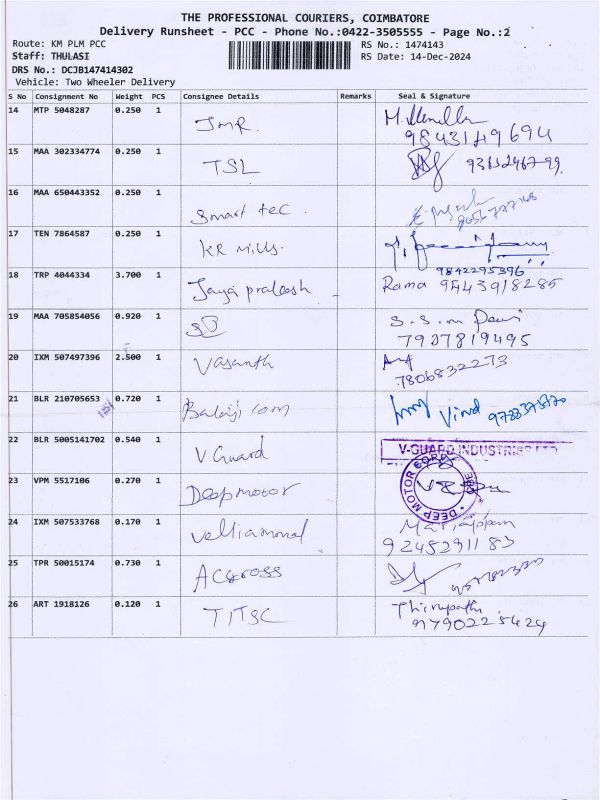 THE PROFESSIONAL COURIERS, COIMBATORE
Delivery Runsheet - PCC - Phone No.:0422-3505555 - Page No.:2
Route: KM PLM PCC RS No.: 1474143
Staff: THULASI RS Date: 14-Dec-2024
DRS No.: DCJB147414302
Vehicle: Two Wheeler Delivery
S No Consignment No Weight PCS Consignee Details Remarks Seal & Signature
14 MTP 5048287 0.250 1 JMR.
9843149694
15 MAA 302334774 0.250 1 TSL
16 MAA 650443352 0.250 1 Smart tec.
17 TEN 7864587 0.250 1 KR Mills.
9842295396
18 TRP 4044334 3.700 1 Jaya prakash Rama
19 MAA 705854056 0.920 1 S.S.M Devi
7927819495
20 IXM 507497396 2.500 1 Vasanth
7806832273
21 BLR 210705653 0.720 1 Balaji com Vinod
22 BLR 5005141702 0.540 1 V Guard V-GUARD INDUSTRIES LTD
23 VPM 5517106 0.270 1 Deepmotor DEEP MOTOR
24 IXM 507533768 0.170 1 Velliammal Mariappan
9245291183
25 TPR 50015174 0.730 1
26 ART 1918126 0.120 1 TITSC Thirupathi
9790225424